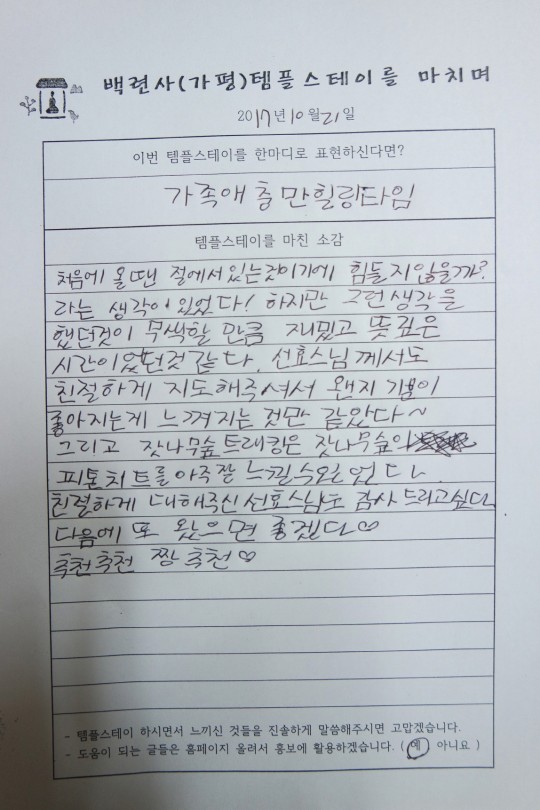 백련사(가평)템플스테이를 마치며
2017년 10월 21일
이번 템플스테이를 한마디로 표현하신다면?
가족애 충만힐링타임
템플스테이를 마친 소감
처음에 올땐 절에서 있는것이기에 힘들지않을까?
라는 생각이 있었다! 하지만 그런생각을
했던것이 무색할 만큼 재밌고 뜻깊은
시간이었던것 같다. 선효스님께서도
친절하게 지도해주셔서 왠지 기분이
좋아지는게 느껴지는 것만 같았다~
그리고 잣나무숲트래킹은 잣나무숲의
피톤치트를아주잘 느낄수있었다.
친절하게 대해주신 선효스님도 감사드리고싶다
다음에 또 왔으면 좋겠다♡
추천추천 짱 추천♡
- 템플스테이 하시면서 느끼신 것들을 진솔하게 말씀해주시면 고맙겠습니다.
- 도움이 되는 글들은 홈페이지 올려서 홍보에 활용하겠습니다. ( 예 아니요 )